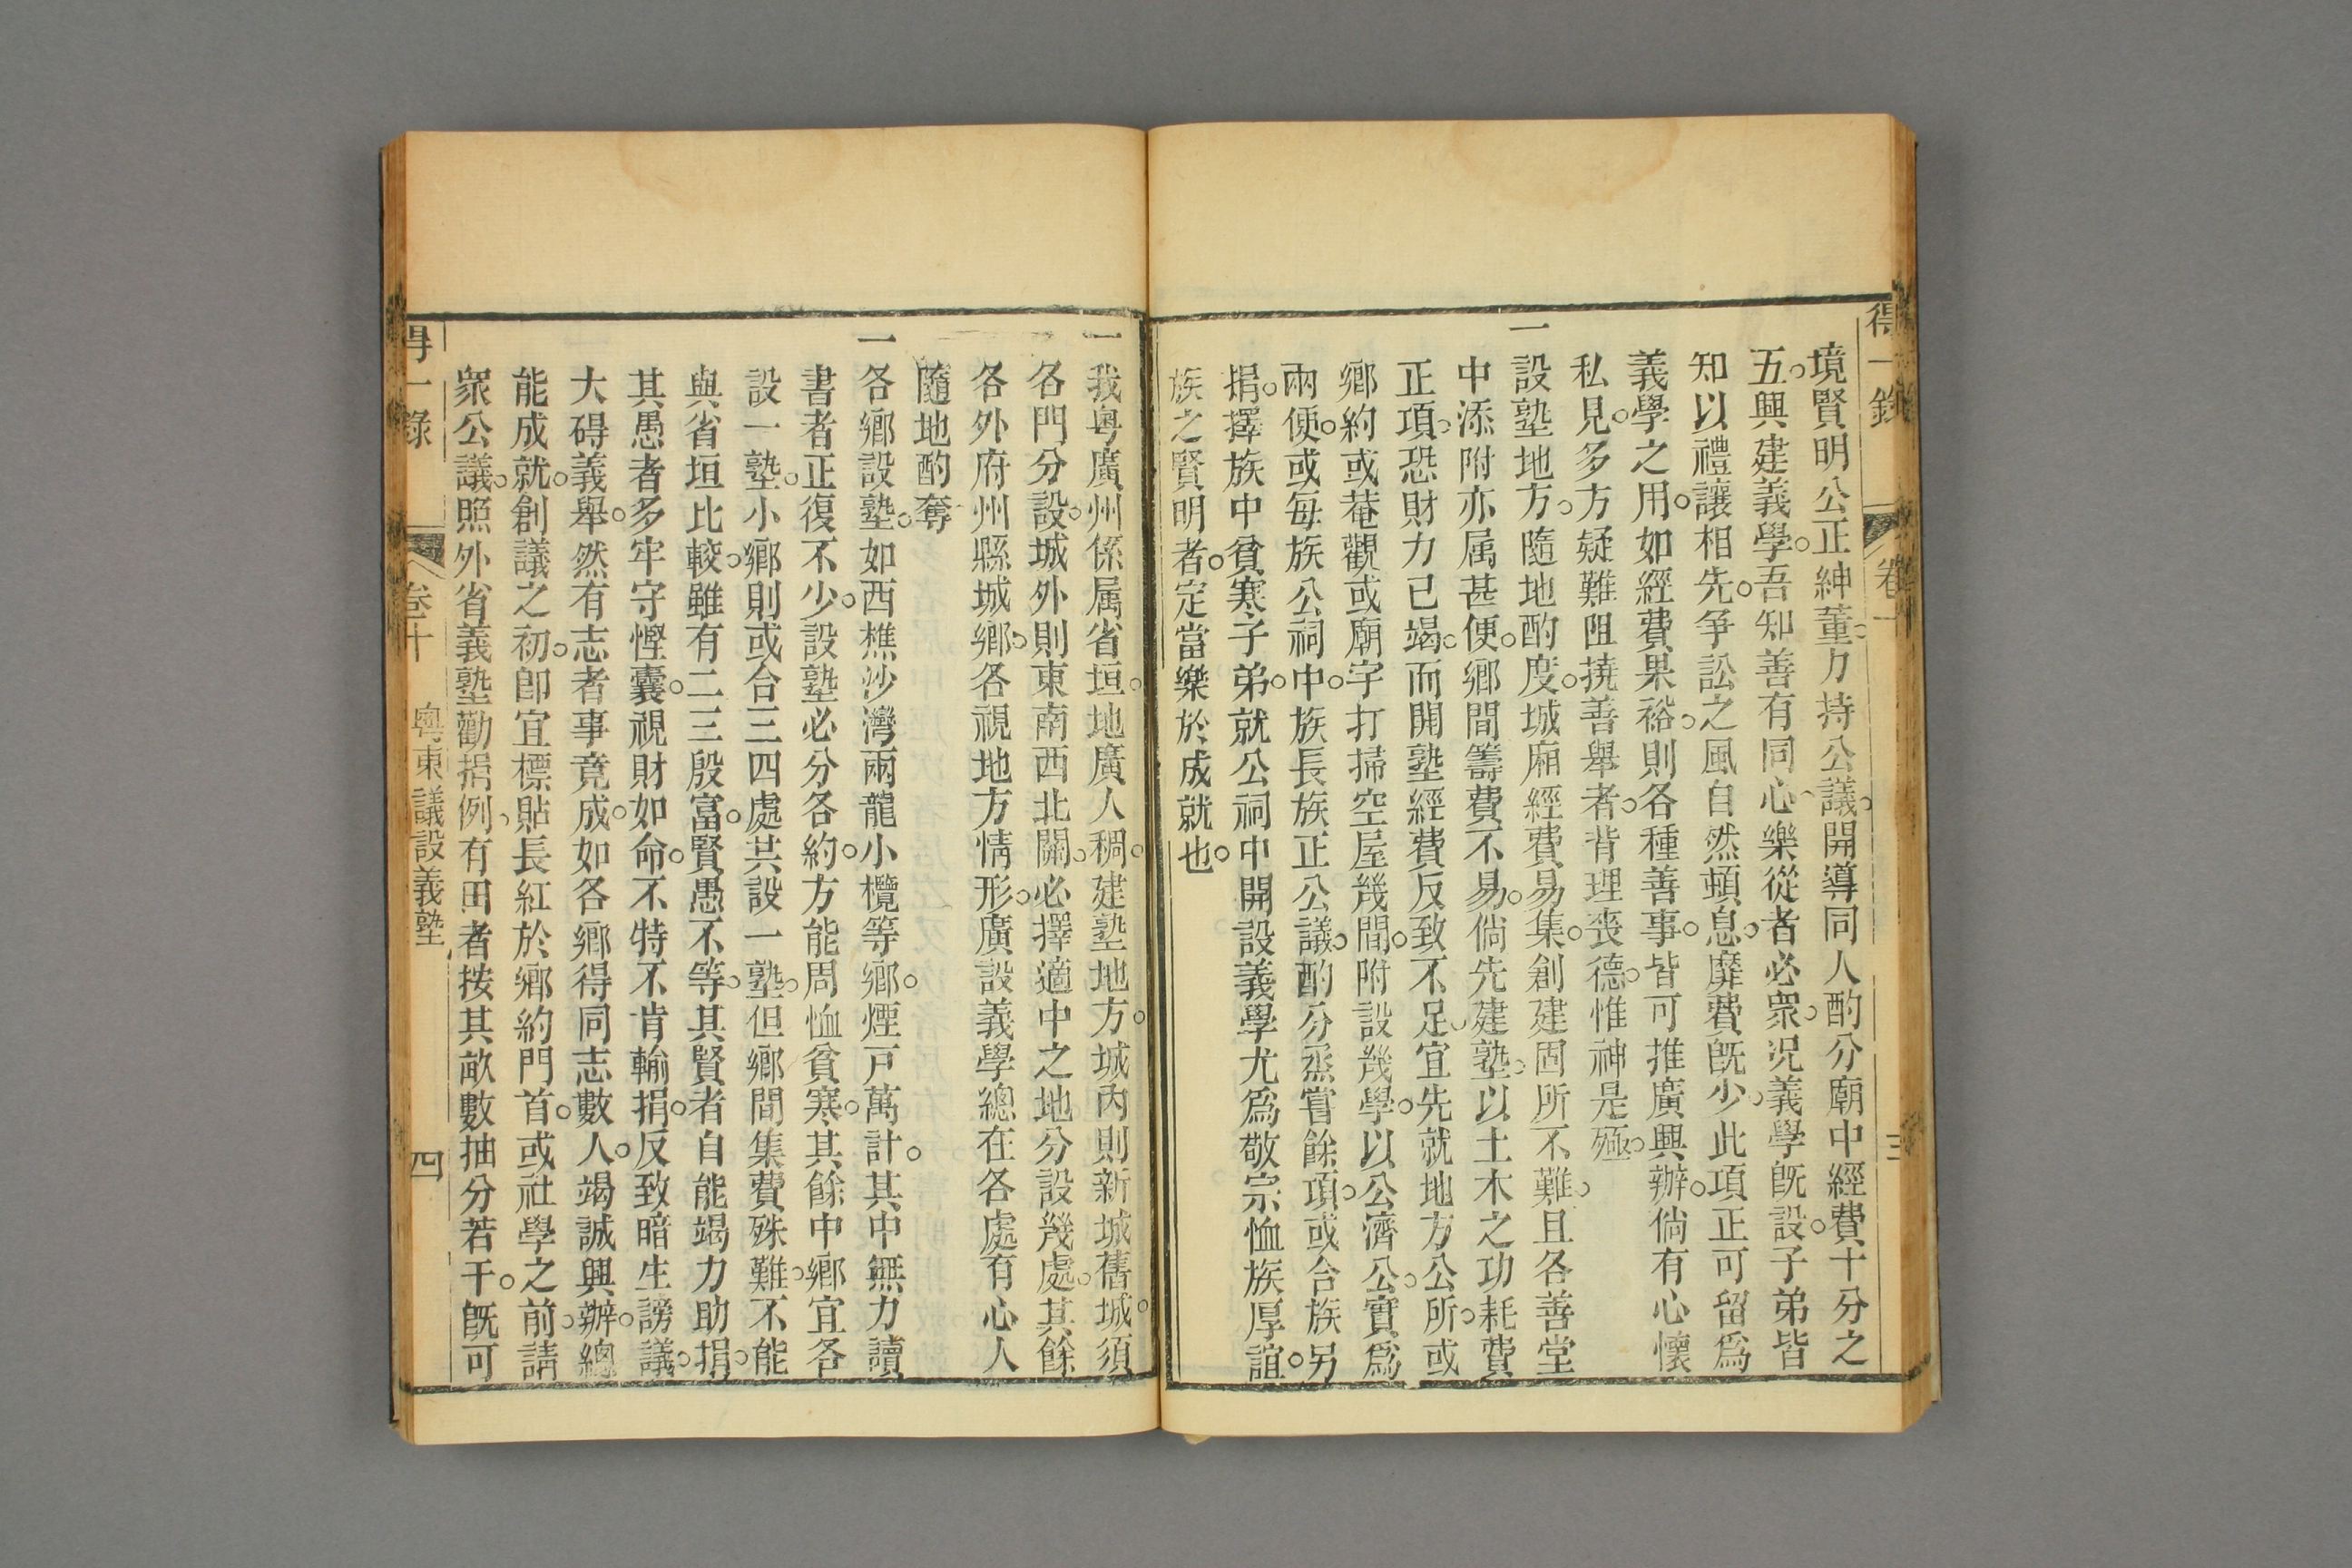 得一錄 卷十 三
境賢明公正紳董力持公議開導同人酌分廟中經費十分之
五興建義學吾知善有同心樂從者必衆况義學旣設子弟皆
知以禮讓相先爭訟之風自然頓息靡費旣少此項正可留爲
義學之用如經費果裕則各種善事皆可推廣興辦倘有心懷
私見多方疑難阻撓善舉者背理喪德惟神是殛
一設塾地方隨地酌度城廂經費易集創建固所不難且各善堂
中添附亦属甚便鄉間籌費不易倘先建塾以土木之功耗費
正項恐財力已竭而開塾經費反致不足宜先就地方公所或
鄉約或菴觀或廟宇打掃空屋幾間附設幾學以公濟公實爲
兩便或每族公祠中族長族正公議酌分烝嘗餘項或合族另
捐擇族中貧寒子弟就公祠中開設義學尤爲敬宗恤族厚誼
族之賢明者定當樂於成就也
一我粤廣州係属省垣地廣人稠建塾地方城內則新城舊城須
各門分設城外則東南西北關必擇適中之地分設幾處其餘
各外府州縣城鄉各視地方情形廣設義學總在各處有心人
隨地酌奪
一各鄉設塾如西樵沙灣兩龍小欖等鄉煙戸萬計其中無力讀
書者正復不少設塾必分各約方能周恤貧寒其餘中鄉宜各
設一塾小鄉則或合三四處共設一塾但鄉間集費殊難不能
與省垣比較雖有二三殷富賢愚不等其賢者自能竭力助捐
其愚者多牢守慳囊視財如命不特不肯輸捐反致暗生謗議
大碍義舉然有志者事竟成如各鄉得同志數人竭誠興辦總
能成就創議之初卽宜標貼長紅於鄉約門首或社學之前請
衆公議照外省義塾勸捐例有田者按其畝數抽分若干旣可
得一錄 卷十 粤東議設義塾 四